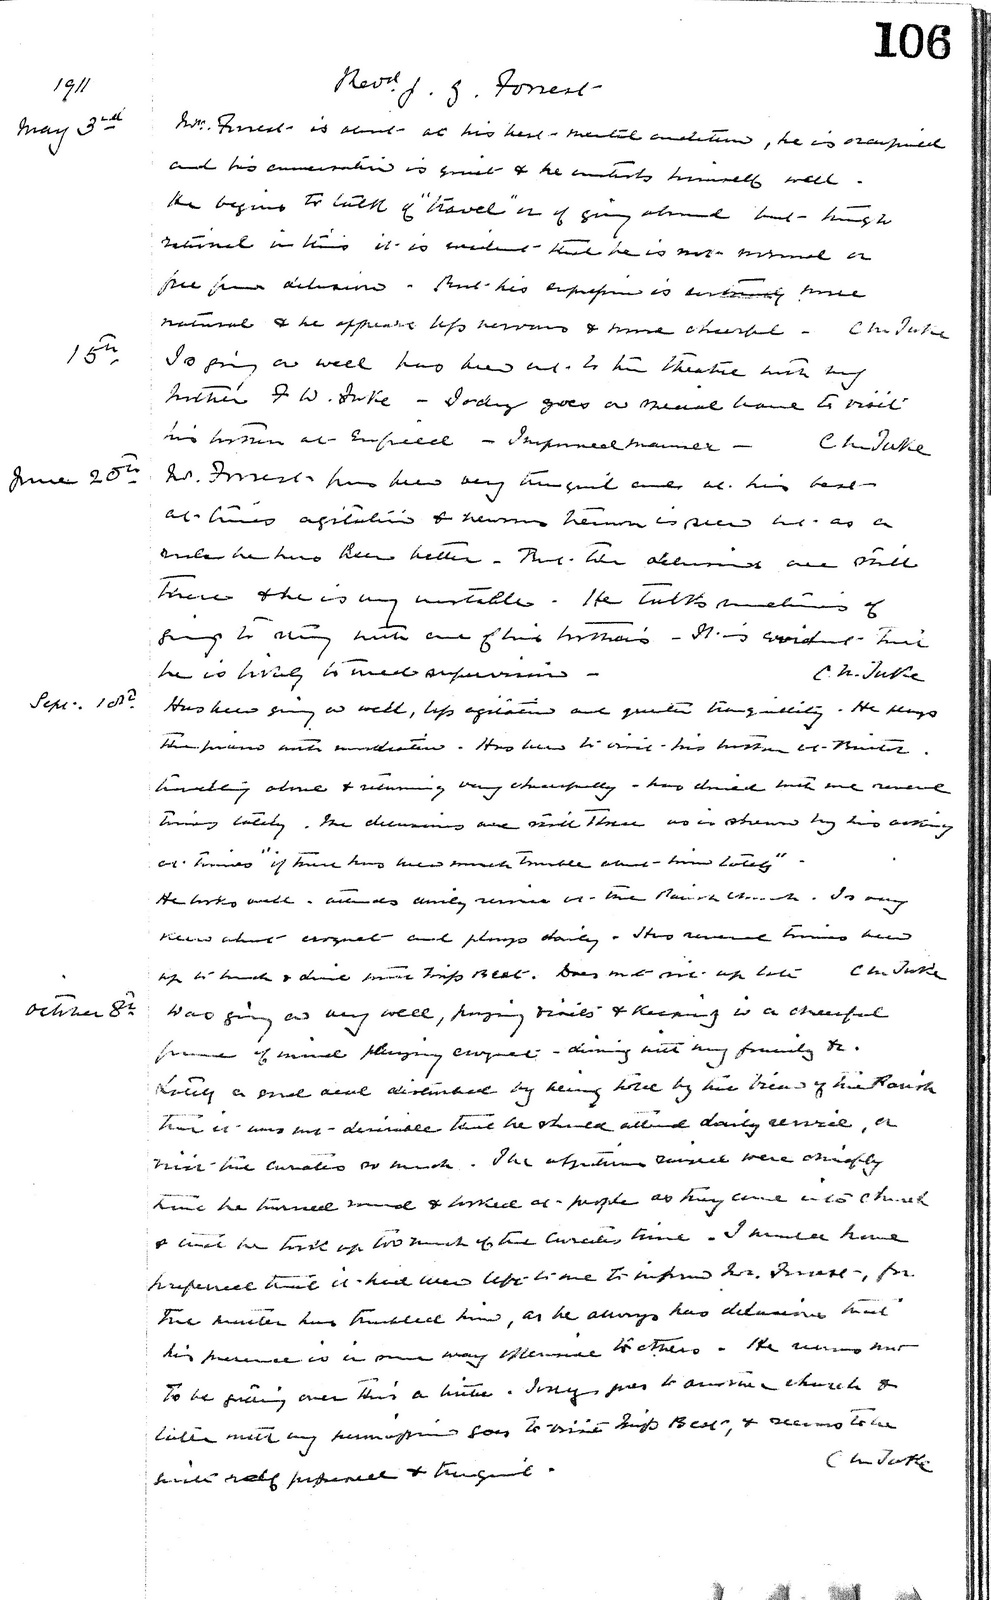 106
1911
Revd. J. G. Forrest
May 3rd
Mr. Forrest is about at his best mental condition, he is occupied
and his conversation is quiet & he controls himself well.
He begins to talk of "travel" or of going abroad but though
rational in this it is evident that he is not normal or
free from delusion. But his expression is certainly more
natural & he appears less nervous & more cheerful - C M Tuke
15th
Is going on well has been out to the theatre with my
brother F W. Tuke - Today goes on special leave to visit
his brother at Enfield - Improved manner - C M Tuke
June 20th
Mr. Forrest has been very tranquil and at his best
at times agitation & nervous tremor is seen but as a
rule he has been better. But the delusions are still
there & he is very unstable. He talks sometimes of
going to stay with one of his brothers - It is evident that
he is likely to need supervision - C M. Tuke
Sept. 10th
Has been going on well, less agitation and greater tranquillity. He plays
the piano with moderation. Has been to visit his brother at
travelling alone & returning very cheerfully - has dined with me several
times lately. The delusions are still there as is shewn by his asking
at times "if there has been much trouble about him lately" -
He looks well - attends daily service at the Parish Church. Is very
keen about croquet and plays daily. Has several times been
up to lunch & dine with Miss Best. Does not sit up late C M Tuke
October 8th
Was going on very well, paying visits & keeping in a cheerful
frame of mind playing croquet - dining with my family &c.
Lately a good deal disturbed by being told by the Vicar of the Parish
that it was not desirable that he should attend daily service, or
visit the curates so much. The objections raised were chiefly
that he turned round & looked at people as they came into Church
& that he took up too much of the Curates time. I should have
preferred that it had been left to me to inform Mr. Forrest, for
the matter has troubled him, as he always has delusions that
his presence is in some way offensive to others. He seems now
to be getting over this a little. Today goes to another church &
later with my permission goes to visit Miss Best, & seems to be
quite self possessed & tranquil. C M Tuke